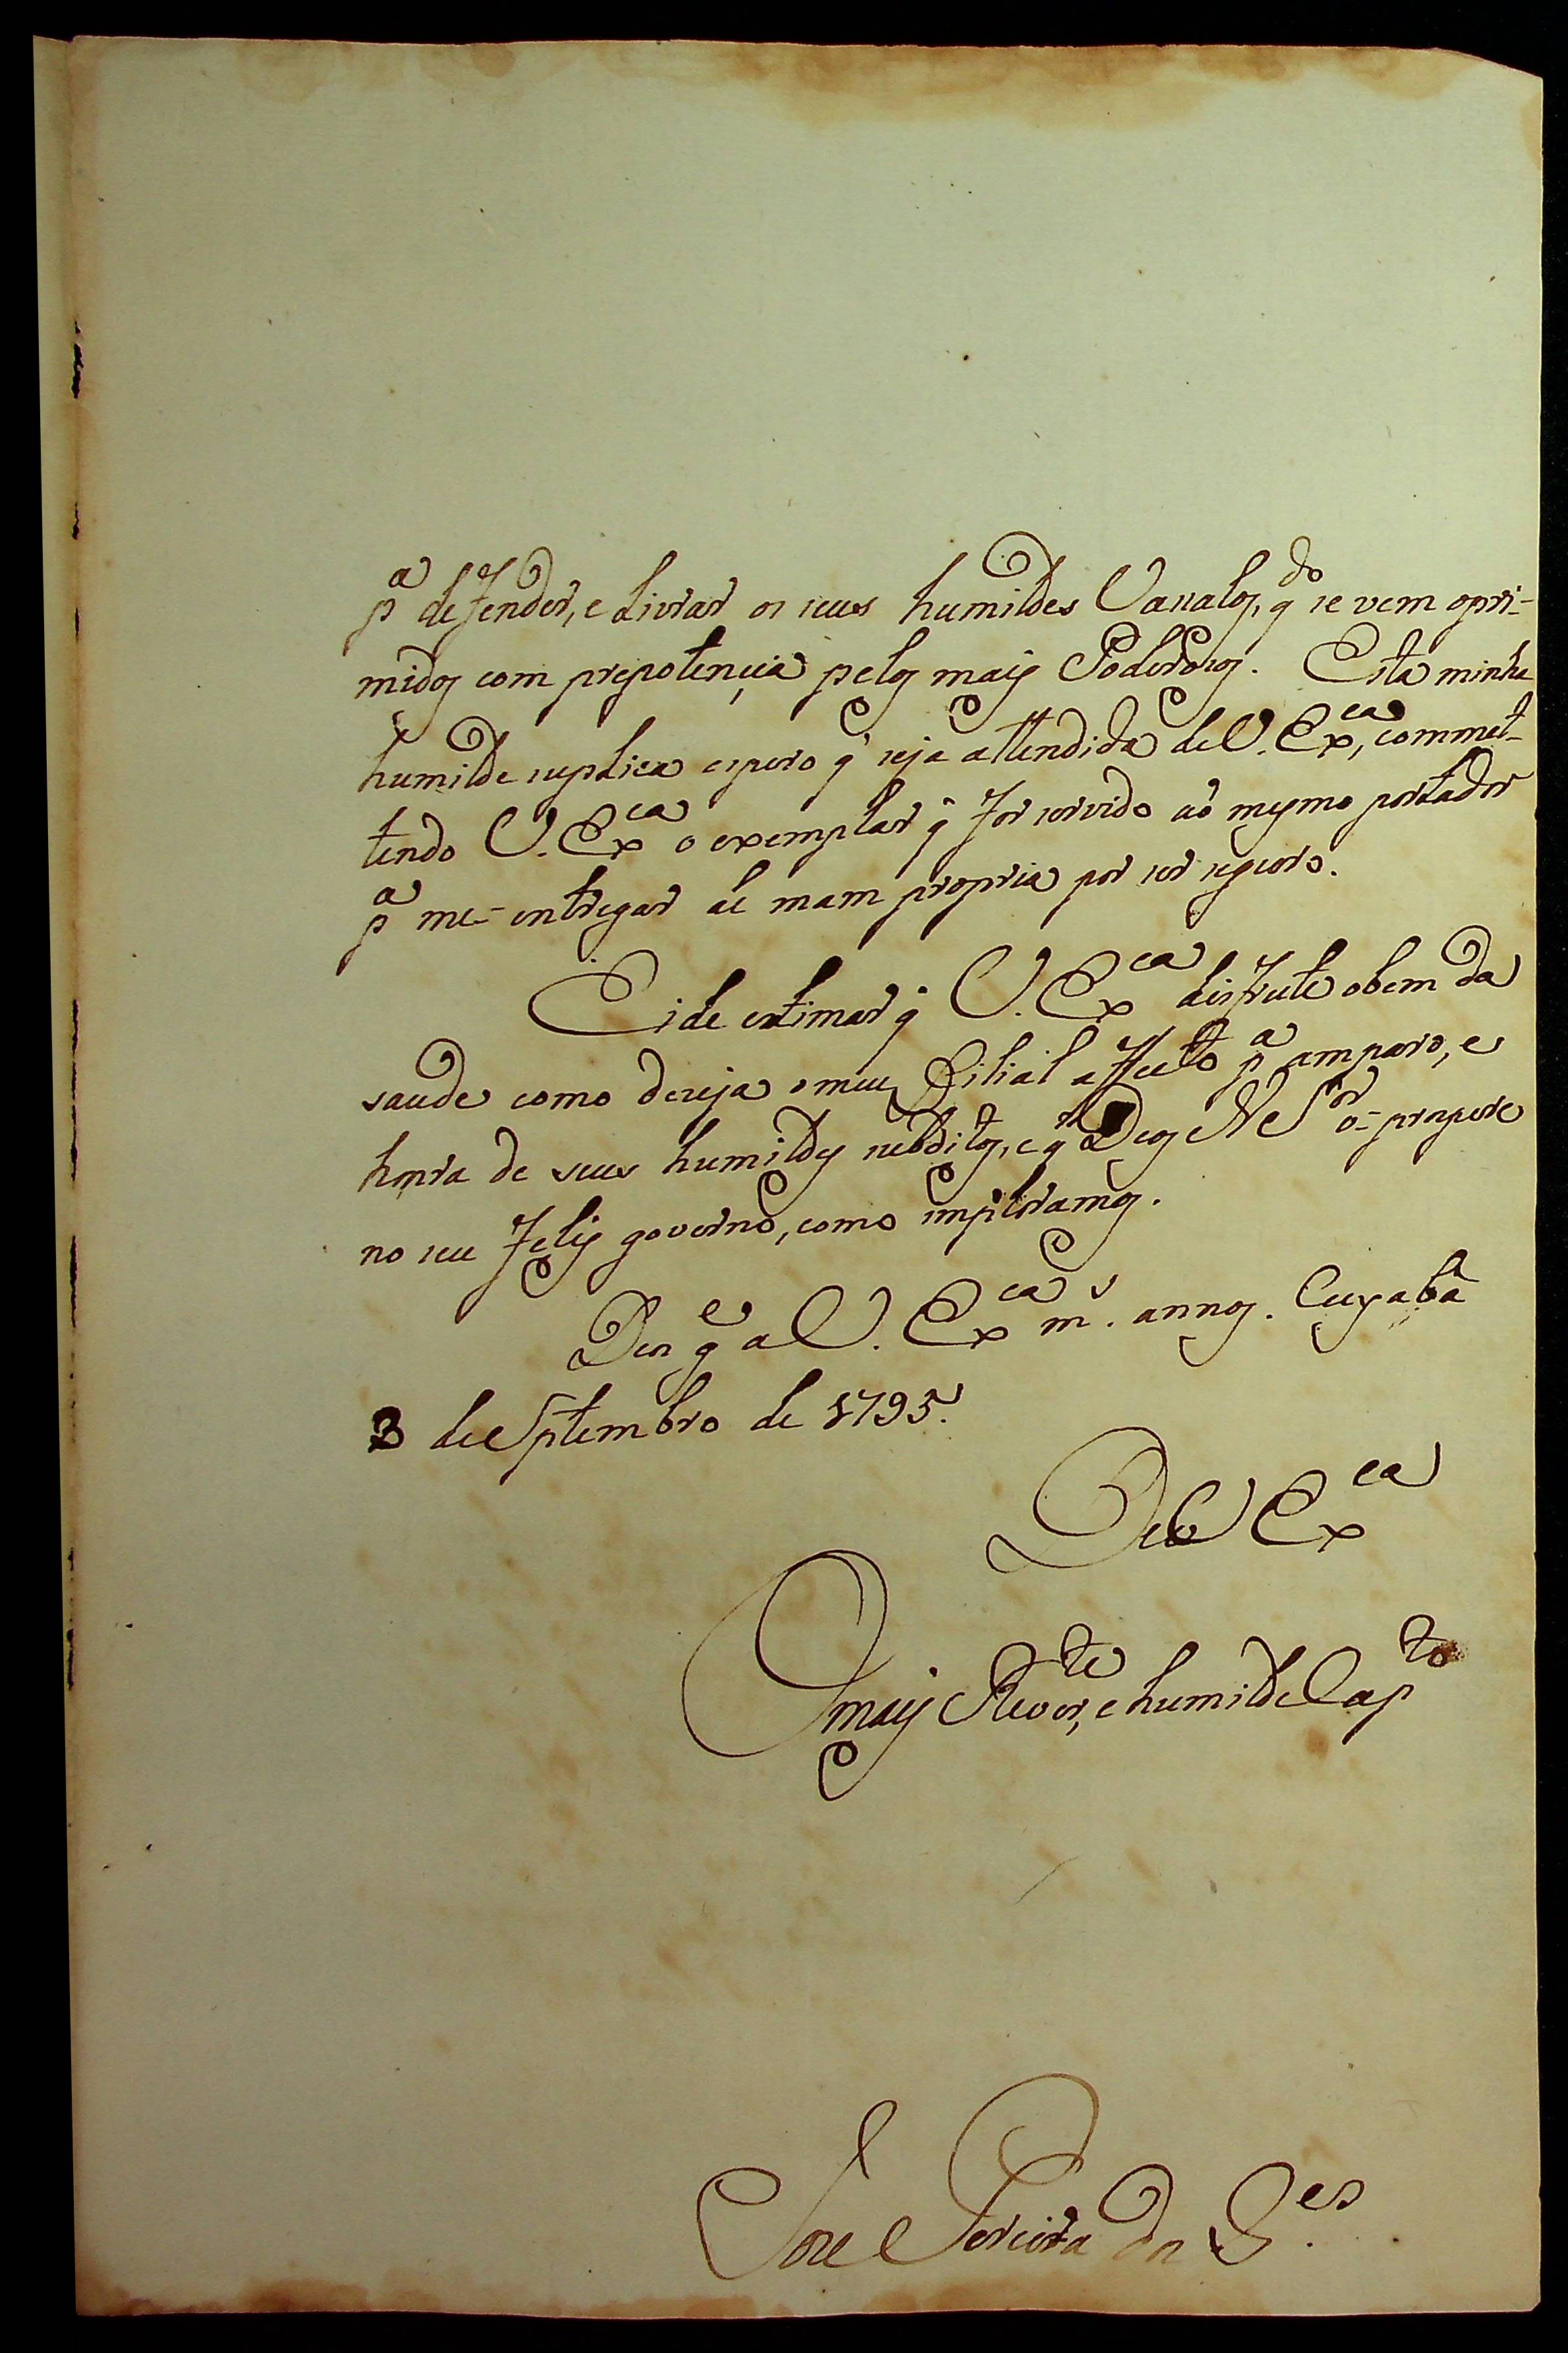 pª defender, e livrar os seus humildes Vasalos, qdo se vem opri-
midos com prepotençia pelos mais Poderosos. Esta minha
humilde suplica espero q̃ seja attendida de V. Exca, commet-
tendo V. Exca o exemplar q̃ for servido aó mesmo portador
pª me-entregar de mam propria por ser seguro.
Eide estimar q̃ V. Exca desfrute obem da
saude como deseja o meu Filial affecto pª amparo, e
honra de seus humildes subditos, e q̃ Deos N S.or o-prospere
no seu felis governo, como imploramos.
Deos ge a V. Exca ms. annos. Cuyabá
3 de Septembro de 1795.
De V Exca
O mais Reverte, e humilde Capto
Joze Pereira dos G.es